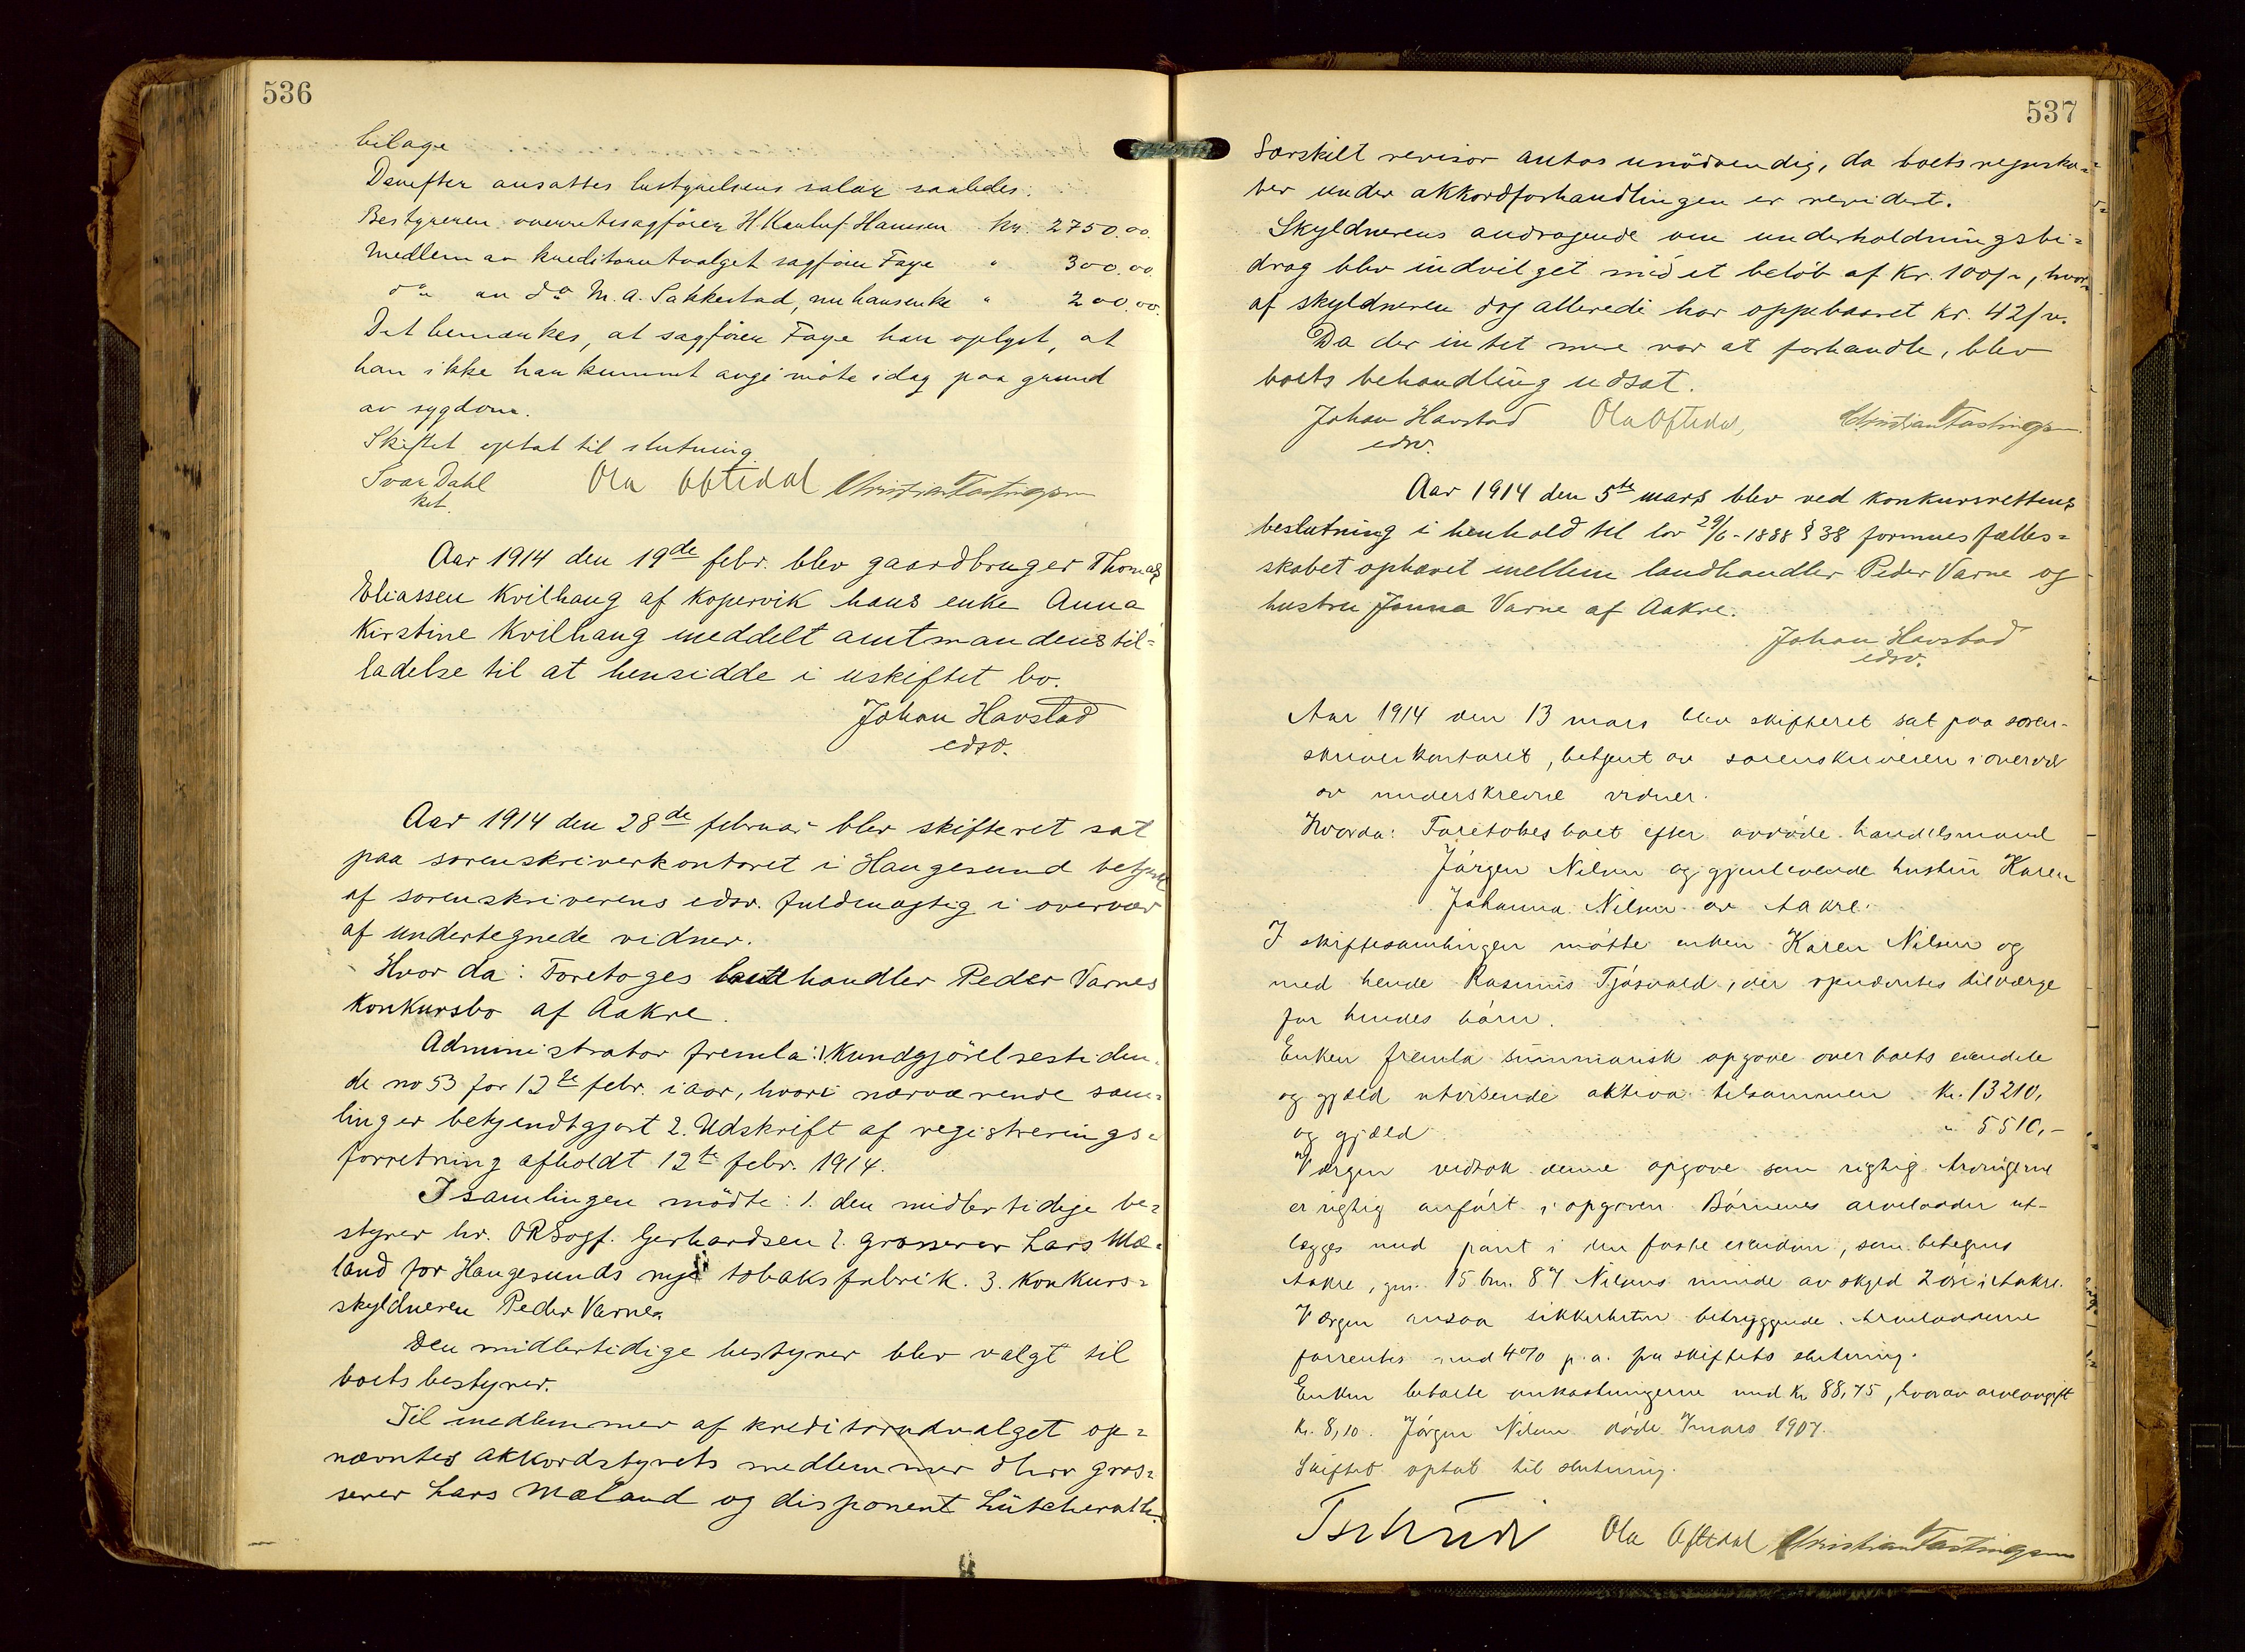 536
bilage
Derefter ansattes bestyrelsens salær saaledes:
Bestyreren overretssagfører H. Hansen kr. 2750.00.
Medlem av kreditorutvalget sagfører Faye " 300.00.
do av do M. A. Sakkestad, nu hans enke " 200.00.
Det bemærkes, at sagfører Faye har oplyst, at
han ikke har kunnet avgi møte idag paa grund
av sygdom.
Skiftet optat til slutning.
Ivar Dahl Ola Oftedal Christian Fastingsen
kst.
Aar 1914 den 19de febr. blev gaardbruger Thomas
Eliassen Kvilhaug af Kopervik hans enke Anna
Kirstine Kvilhaug meddelt amtmandens til=
ladelse til at hensidde i uskiftet bo.
Johan Havstad
edsv.
Aar 1914 den 28de februar blev skifteret sat
paa sorenskriverkontoret i Haugesund betjent
af sorenskriverens edsv. fuldmægtig i overvær
af undertegnede vidner.
Hvor da: Foretoges landhandler Peder Varnes
konkursbo af Aakre.
Administrator fremla: 1 Kundgjørelsestiden=
de no 53 for 12te febr. i aar, hvori nærværende sam=
ling er bekjendtgjort 2. Udskrift af registrerings=
forretning afholdt 12te febr. 1914.
I samlingen mødte: 1. den midlertidige be=
styrer hr. ORSagf. Gerhardsen 2. grosserer Lars Mæ=
land for Haugesunds nye tobaksfabrik. 3. Konkurs=
skyldneren Peder Varne.
Den midlertidige bestyrer blev valgt til
boets bestyrer.
Til medlemmer af kreditorudvalget op=
nævntes akkordstyrets medlemmer d'hrr gros=
serer Lars Mæland og disponent Lütcherath.
537
Særskilt revisor antas unødvendig, da boets regnska=
ber under akkordforhandlingen er revidert.
Skyldnerens andragende om underholdningsbi=
drag blev indvilget med et beløb af kr. 100/-, hvor=
af skyldneren dog allerede har oppebaaret kr. 42/-.
Da der intet mere var at forhandle, blev
boets behandling udsat.
Johan Havstad Ola Oftedal Christian Fastingsen
edsv.
Aar 1914 den 5te mars blev ved konkursrettens
beslutning i henhold til lov 29/6-1888 § 38 formuesfælles=
skabet ophævet mellem landhandler Peder Varne og
hustru Jonna Varne af Aakre.
Johan Havstad
edsv.
Aar 1914 den 13 mars blev skifteret sat paa soren-
skriverkontoret, betjent av sorenskriveren i overvær
av underskrevne vidner.
Hvorda: Foretokes boet efter avdøde handelsmand
Jørgen Nilsen og gjenlevende hustru Karen
Johanna Nilsen av Aakre.
I skiftesamlingen møtte enken Karen Nilsen og
med hende Rasmus Tjøsvold, der opnævntes til værge
for hendes børn.
Enken fremla summarisk opgave over boets eiendele
og gjæld utvisende aktiva tilsammen kr. 13210,
og gjæld " 5510,-
Værgen vedtok denne opgave som rigtig. Arvingerne
er rigtig anført i opgaven. Børnenes arvelodder ut-
lægges med pant i den faste eiendom, som betegnes
Aakre, gnr. 15 bnr. 87 Nilsens minde av skyld 2 øre i Aakre.
Værgen ansaa sikkerheten betryggende. Arveloddene
forrentes med 4% p. a. fra skiftets slutning.
Enken betalte omkostningerne med kr. 88,75, hvorav arveavgift
kr. 8,10. Jørgen Nilsen døde 7 mars 1907.
Skiftet optat til slutning.
Tschudi Ola Oftedal Christian Fastingsen